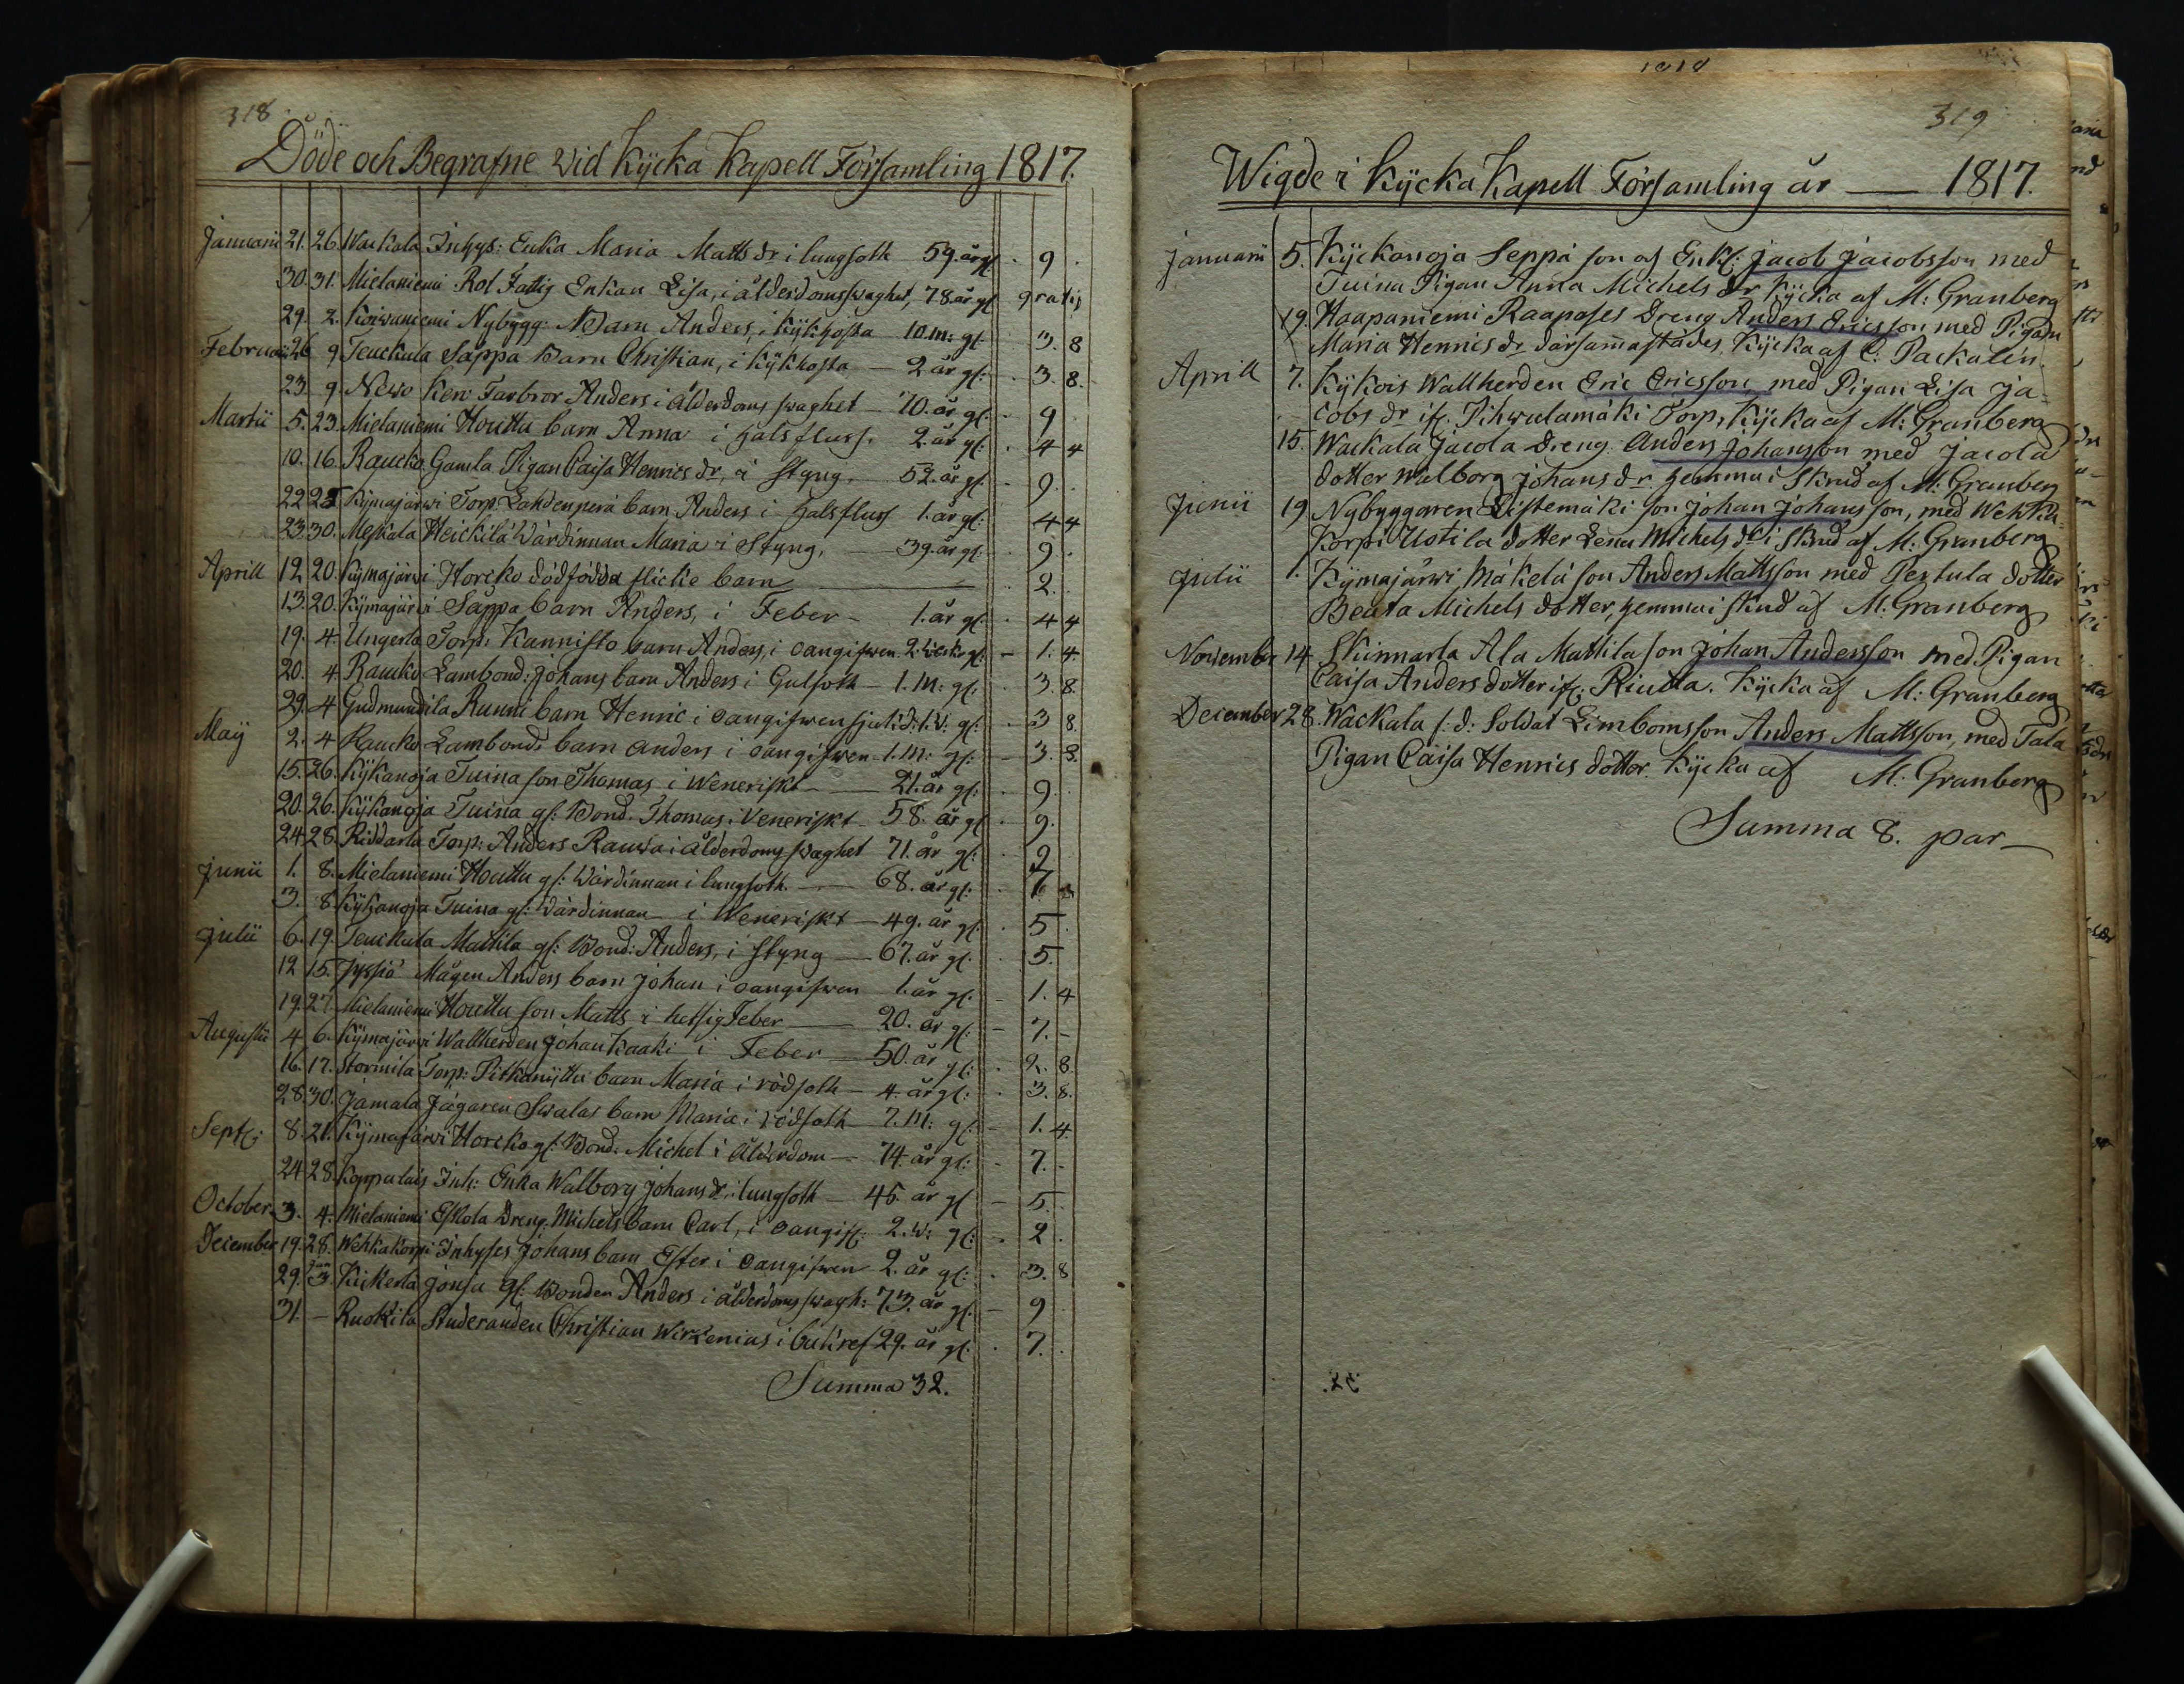 318
Döde och Begrafne wid Kÿcka Kapell Församling 1817.
Januarii 21. 26. Wackala Inhys: Enka Maria Matts dr i lungsoth 59. år gl. 9.
30. 31. Mielaniemi Rot Fattig Enkan Lisa, i ålderdomsswaghet, 78. år gl gratis
29. 2. Koiwaniemi Nybygg: Nd barn Anders, i kÿkhosta 10. m: gl: 3. 8
Februari 26 9 Teuckula Säppä Barn Christian, i kÿkhosta 2 år gl: 3. 8.
23 9. Newo Farbror Anders i ålderdoms swaghet 70. år gl: 9
Martii 5. 23. Mielaniemi Houttu barn Anna i halsfluss. 2. år gl: 4 4
10. 16. Raucko Gamla Pigan Caisa Henrics dr, i styng. 52. år gl. 9.
22 25 Kÿmajärwi Torp: Lahdenperä barn Anders i halsfluss 1. år gl: 4 4
23. 30. Meskala Heickilä Wärdinnan Maria i Styng, 39. år gl: 9.
Aprill 12 20. Kÿmajärwi Horcko dödfödda flicke barn 2.
13. 20. Kÿmajärwi Säppä barn Anders, i Feber 1. år gl. 4 4
19. 4. Ungerla Torp: Kannisto barn Anders, i oangifwen 2. weck gl: 1. 4.
20. 4. Raucko Lambond: Johans barn Anders i Gulsoth 1. m: gl: 3. 8
29. 4 Gudmundila Runni barn Henric i oangifwen sjukd: 1. w: gl: 3 8.
Maÿ 2. 4 Raucko Lambonds barn Anders i oangifwen 1. m: gl: 3. 8.
15. 26. Kÿkanoja Tuina son Thomas i Weneriskt 21. år gl: 9
20. 26. Kÿkanoja Tuina gl: Bond. Thomas i Veneriskt 58. år gl 9.
24 28. Riddarla Torp: Anders Rauwa i ålderdoms swaghet 71. år gl: 9
Junii 1. 8. Mielaniemi Houttu gl: Wärdinnan i lungsoth 68. år gl: 7
3. 8 Kÿkanoja Tuina gl: Wärdinnan i Weneriskt 49. år gl: 5
Julii 6. 19. Teuckula Mattila gl: Bond: Anders, i styng 67. år gl: 5.
12 15. Jyssiö Mågen Anders barn Johan i oangifwen 1. år gl: 1. 4
19. 27. Mielaniemi Houttu son Matts i hetsig Feber 20. år gl: 7.
Augusti 4 6. Kÿmajärwi Wallherden Johan Kaaki i Feber 50. år gl: 2. 8.
16. 17. Stormila Torp: Pitkänÿttu barn Maria i rödsoth 4. år gl: 3. 8.
28. 30. Jamala Jägaren Swalas barn Maria i rödsoth 7. m: gl: 1. 4.
Sept: 8. 21. Kÿmajärwi Horcko gl: Bond. Michel i ålderdom 74. år gl: 7.
24 28. Koppalais Inh: Enka Walborg Johans dr i lungsoth 45. år gl 5.
October 3. 4. Mielaniemi Eskola Dreng Michels barn Carl, i oangif: 2. w: gl: 2.
December 19. 28. Wehkakorpi Inhyses Johans barn Ester i oangifwen 2. år gl: 3. 8
29. Jan 3. Kiikerlä Jonsa gl: Bonden Anders i ålderdoms swagh: 73. år gl: 9
31. Ruokila Studeranden Christian Wirzenius i 29. år gl: 7.
Summa 32.
319
Wigde i Kÿcka Kapell Församling år 1817.
Januarii 5. Kÿckanoja Seppä son af Enkl: Jacob Jacobsson med
Tuina Pigan Anna Michels dr Kÿcka af M: Granberg
19. Haapaniemi Raapases Dreng Anders Ericsson med Pigan
Maria Henrics dr därsammastädes, Kÿcka af C: Packalén.
Aprill 7. Kÿkois Wallherden Eric Ericsson, med Pigan Lisa Ja-
cobs dr if: Pihwulamäki Torp, Kÿcka af M: Granberg
15. Wackala Jacola Dreng Anders Johansson med Jacola
dotter Walborg Johans dr. hemma i Skrud af M. Granberg
Junii 19 Nybyggaren Listemäki son Johan Johansson, med Wehka-
korpi Uotila dotter Lena Michels dr i Skrud af M: Granberg
Julii 1. Kÿmajärwi Mäkelä son Anders Mattsson med Pertula dotter
Beata Michels dotter, hemma i skrud af M. Granberg
November 14 Skinnarla Ala Mattila son Johan Andersson med Pigan
Caisa Anders dotter if: Riutta. Kÿcka af M: Granberg
December 28. Wackala f: d: Soldat Limbomsson Anders Mattsson, med Tala
Pigan Caisa Henrics dotter Kÿcka af M: Granberg
Summa 8. par